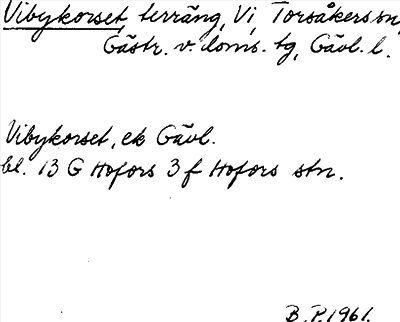 Vibykorset, terräng, Vi, Torsåkers sn,
Gästr. v. doms. tg, Gävl. l.
Vibykorset, ek Gävl.
bl. 13 G Hofors 3 f Hofors stn.
B. P. 1961.